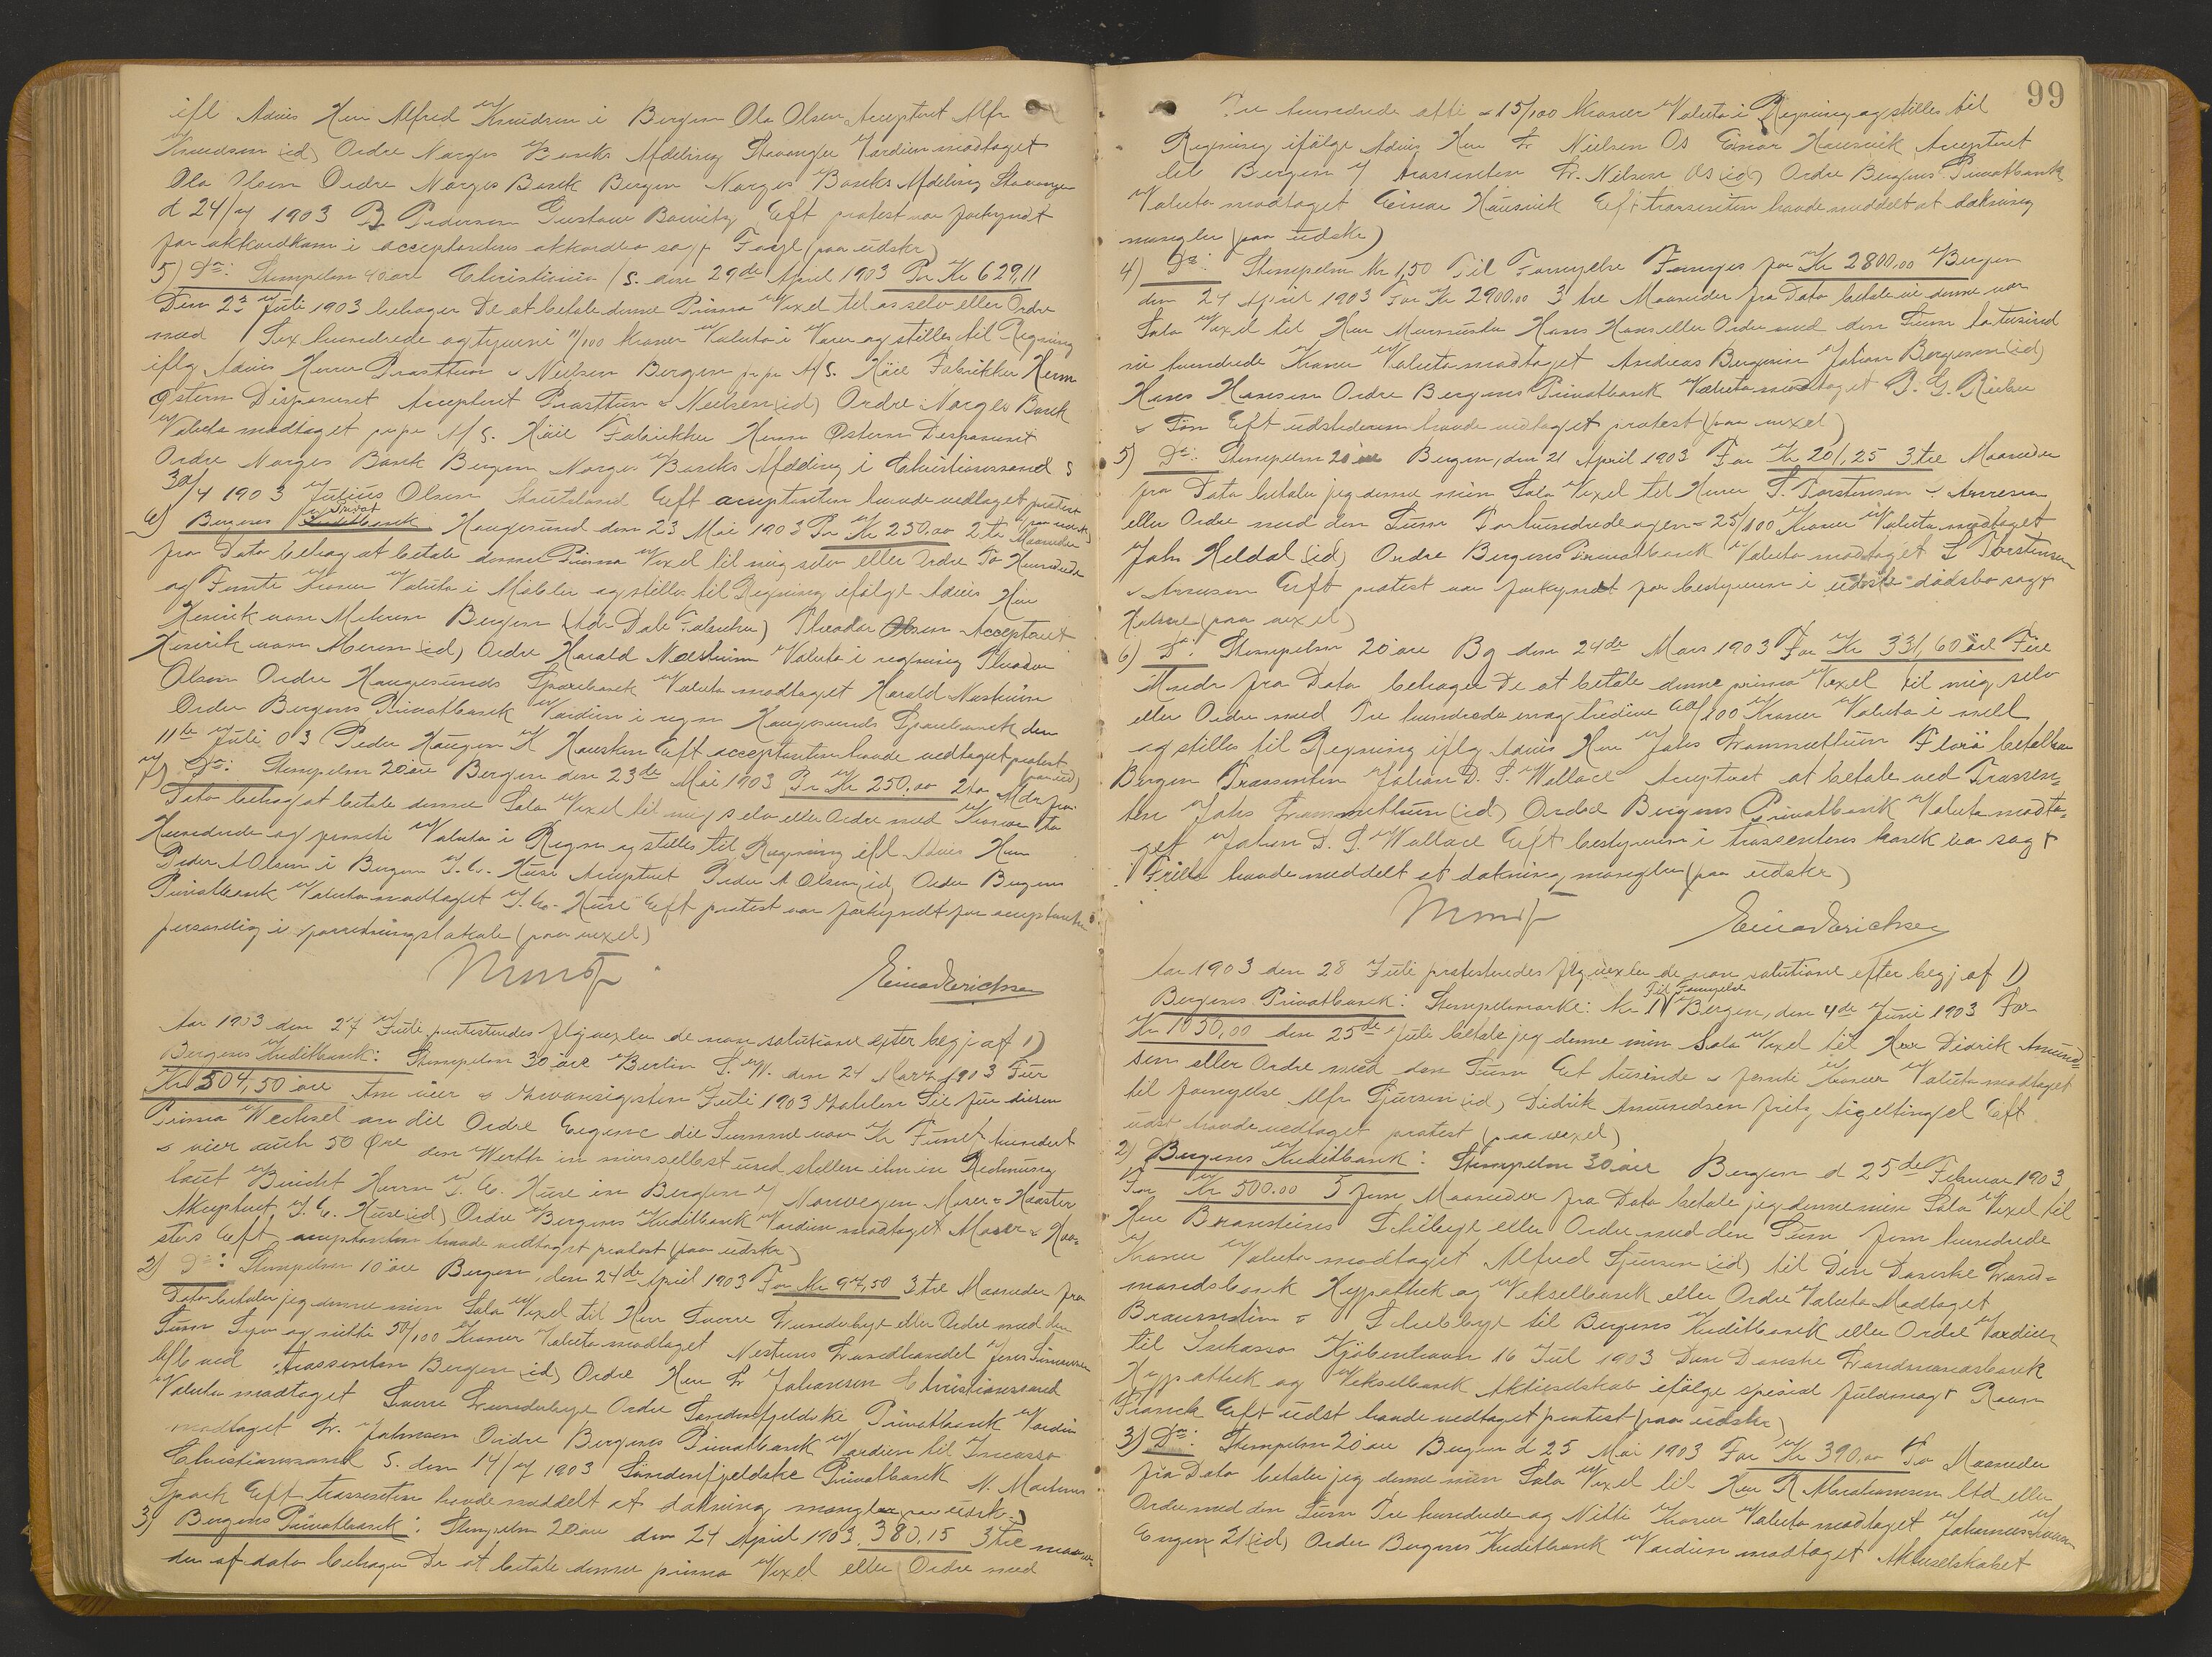 ifl Advis Herr Alfred Knudsen i Bergen Ola Olsen Acceptert Alfr
Knudsen (id) Ordre Norges Banks Afdeling Stavanger Værdien modtaget
Ola Olsen Ordre Norges Bank Bergen Norges Banks Afdeling Stavanger
d 24/7 1903 B Pedersen Gustave Bowitz Eft protest var forkyndt
for akkordkom i acceptantens akkordbo sagf Faye (paa udskr)
5) Do: Stempelm 40 øre Christiania /S. den 29de April 1903 Pr Kr 629,11
Den 23 Juli 1903 behager De at betale denne Prima Vexel til os selv eller Ordre
med Sex hundrede og tyveni 11/100 Kroner Valuta i Varer og stilles til Regning
iflg Advis Herrer Prasttun & Neilsen Bergen pr pr A/S. Høie Fabrikker Herm
Østern Disponent Acceptert Prasttun & Neilsen (id) Ordre Norges Bank
Valuta modtaget pr pr A/S. Høie Fabrikker Herm Østern Disponent
Ordre Norges Bank Bergen Norges Banks Afdeling i Christianssand S
30/4 1903 Julius Olsen Eft acceptanten havde vedtaget protest
(paa udskr)
6) Bergens Privatbank Haugesund den 23 Mai 1903 Pr Kr 250.00 2 to Maaneder
fra Dato behag at betale denne Prima Vexel til mig selv eller Ordre To Hundrede
og Femti Kroner Valuta i Møbler og stilles til Regning ifølge Advis Herr
Henrik von Mehren Bergen (Adr Dale Fabrikker) Theodor Olsen Acceptert
Henrik von Meren (id) Ordre Harald Næstrum Valuta i regning Theodor
Olsen Ordre Haugesunds Sparebank Valuta modtaget Harald Nøstrum
Ordre Bergens Privatbank Værdien i regn Haugesunds Sparebank den
11te Juli 03 Peder Haugen K Hausken Eft acceptanten havde vedtaget protest
(paa ud)
7) Do: Stempelm 20 øre Bergen den 23de Mai 1903 Pr Kr 250.00 2to Mdr fra
Dato behag at betale denne Sola Vexel til mig selv eller Ordre med Kroner to
Hundrede og femti Valuta i Regn og stilles til Regning ifl Advis Herr
Peder A Olsen i Bergen J. C. Huse Acceptert Peder A Olsen (id) Ordre Bergens
Privatbank Valuta modtaget J. C. Huse Eft protest var forkyndt for acceptanten
personlig i forretningslokale (paa vexel)
Einar Erichsen
Aar 1903 den 27 Juli protesteredes flg vexler de non solutione efter begj af 1)
Bergens Kreditbank: Stempelm 30 øre Berlin S. W. den 24 Marz 1903 Für
Kr 504,50 øre Am vier & zwanzigsten Juli 1903 zahlen Sie für diesen
Prima Wechsel an die Ordre Eigene die Summe von Kr Fünf hundert
& vier auch 50 Øre den Werth in mir selbst und stellen ihn in Rechnung
laut Bericht Herrn J. C. Huse in Bergen / Norwegen Moser & Haaster
Akceptert J. C. Huse (id) Ordre Bergens Kreditbank Værdien modtaget Moser & Haa-
sters Eft acceptanten havde vedtaget protest (paa udskr)
2) Do: Stempelm 10 øre Bergen, den 24de April 1903 For Kr 97,50 3 tre Maaneder fra
Dato betaler jeg denne min Sola Vexel til Herr Sverre Lunderbye eller Ordre med den
Sum Syv og nitti 50/100 Kroner Valuta modtaget Nestuns Landhandel Jens Simonsen
bftb ved trassenten Bergen (id) Ordre Herr Fr Johansen Christianssand
Valuta modtaget Sverre Lunderbye Ordre Søndenfjeldske Privatbank Værdien
modtaget Fr. Johnsen Ordre Bergens Privatbank Værdien til Incasso
Christianssand S. den 14/7 1903 Søndenfjeldske Privatbank N. Martens
Eft trassenten havde meddelt at dækning mangler paa udsk.)
3) Bergens Privatbank: Stempelm 20 øre den 24 April 1903. 380,15 3 tre maane
der af dato behager De at betale denne prima Vexel eller Ordre med
99
Tre hundrede otti & 15/100 Kroner Valuta i Regning og stilles til
Regning ifølge Advis Herr Fr Nielsen Os Einar Hausvik Accepteret
bet Bergen / trassenten Fr. Nilsen Os (id) Ordre Bergens Privatbank
Valuta modtaget Einar Hausvik Eft trassenten havde meddelt at dækning
mangler (paa udskr)
4) Do: Stempelm Kr 1,50 Til Fornyelse Fornyes for Kr 2800,00 Bergen
den 24 April 1903 For Kr 2900.00 3 tre Maaneder fra Dato betale vi denne vor
Sola Vexel til Herr Murmester Hans Hansen eller Ordre med den Sum totusind
ni hundrede Kroner Valuta modtaget Andreas Bergesen Johan Bergesen (id)
Hans Hansen Ordre Bergens Privatbank Valuta modtaget P. G. Rieber
& Søn Eft udstederen havde vedtaget protest (paa vexel)
5) Do: Stempelm 20 øre Bergen, den 21 April 1903 For Kr 201,25 3 tre Maaneder
fra Dato betaler jeg denne min Sola Vexel til Herrer S. Torstensen &
eller Ordre med den Sum Tohundrede og en & 25/100 Kroner Valuta modtaget
Johs Heldal (id) Ordre Bergens Privatbank Valuta modtaget S Torstensen
& Eft protest var forkyndt for bestyreren i udste dødsbo sagf
(paa vexel)
6) Do: Stempelm 20 øre Bg den 24de Mars 1903 For Kr 331,60 øre Fire
Mndr fra Dato behager De at betale denne prima Vexel til mig selv
eller Ordre med Tre hundrede en og tredive 60/100 Kroner Valuta i mell
og stilles til Regning iflg Advis Herr Johs Florø betalbar
Bergen Trassenten Johan D. S. Wallace Acceptert at betale ved Trassen-
ten Johs (id) Ordre Bergens Privatbank Valuta modta-
get Johan D. S. Wallace Eft bestyreren i trassentens konk bo sagf
havde meddelt at dækning mangler (paa udskr)
Einar Erichsen
Aar 1903 den 28 Juli protesteredes flg vexler de non solutione efter begj af 1)
Til Fornyelse
Bergens Privatbank: Stempelmærke: Kr 1 Bergen, den 4de Juni 1903 For
Kr 1050,00 den 25de Juli betale jeg denne min Sola Vexel til Herr Didrik Amund-
sen eller Ordre med den Sum Et tusinde & femti Kroner Valuta modtaget
til fornyelse Alfr Sjursen (id) Didrik Amundsen Eft
udst havde vedtaget protest (paa vexel)
2) Bergens Kreditbank: Stempelm 30 øre Bergen d 25de Februar 1903
For Kr 500.00 5 fem Maaneder fra Dato betale jeg denne min Sola Vexel til
Herr Braunsteins eller Ordre med den Sum fem hundrede
Kroner Valuta modtaget Alfred Sjursen (id) til Den Danske Land-
mandsbank Hypothek og Vekselbank eller Ordre Valuta Modtaget
Braunstein & til Bergens Kreditbank eller Ordre Værdien
til Inkasso Kjøbenhavn 16 Jul 1903 Den Danske Landmandsbank
Hypothek og Vekselbank Aktieselskab ifølge special fuldmagt
Franck Eft udst havde vedtaget protest (paa udskr)
3) Do: Stempelm 20 øre Bergen d 25 Mai 1903 For Kr 390.00 To Maaneder
fra Dato betaler jeg denne min Sola Vexel til Herr R Abrahamsen Ltd eller
Ordre med den Sum Tre hundrede og Nitti Kroner Valuta modtaget Johannes
Engen 21 (id) Ordre Bergens Kreditbank Værdien modtaget Aktieselskabet